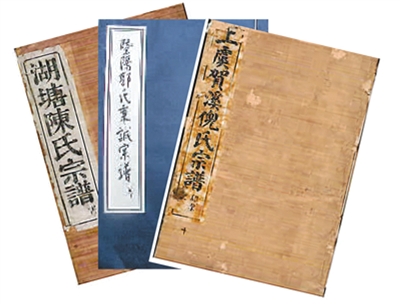 湖塘陳氏宗譜
暨陽郭氏東誠宗譜
上虞賀溪倪氏宗譜